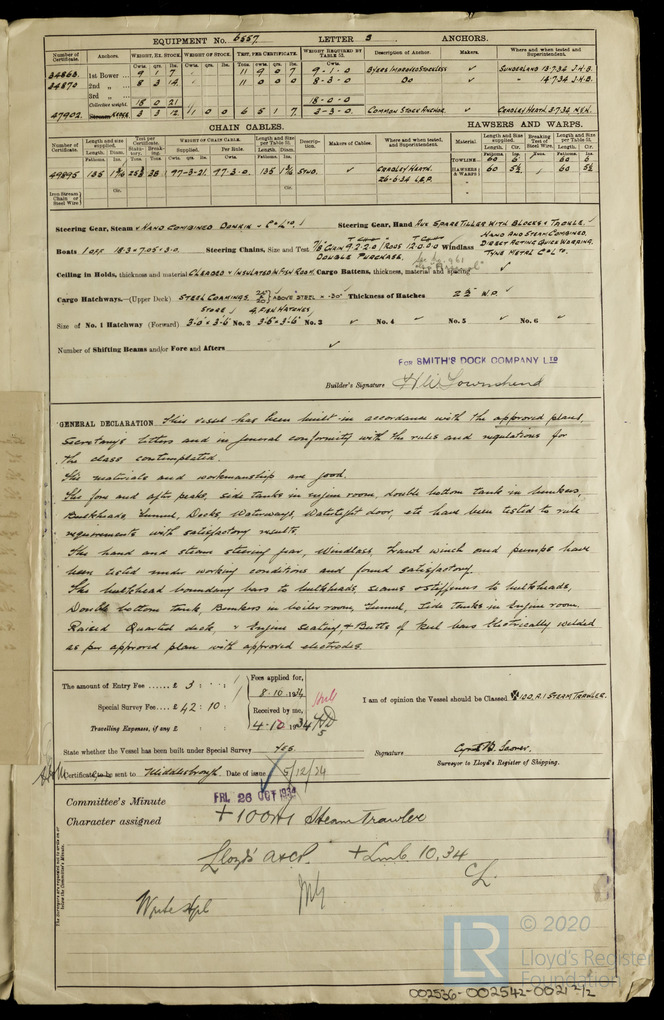 EQUIPMENT No. 6557. LETTER S ANCHORS.
Number of Certificate. Anchors. WEIGHT, EX. STOCK. WEIGHT OF STOCK. TEST, PER CERTIFICATE. WEIGHT REQUIRED BY TABLE 53. Description of Anchor. Makers. Where and when tested and Superintendent.
Cwts. qrs. lbs. Cwts. qrs. lbs. Tons. cwts. qrs. lbs. Cwts.
34863. 1st Bower 9 1 7 11 9 0 7 9-1-0 BYERS IMPROVED STOCKLESS ✓ SUNDERLAND 13.7.34 J.H.B.
34870 2nd „ 8 3 14 11 0 0 0 8-3-0 DO ✓ „ 14.7.34 J.H.B.
3rd „
Collective weight. 18 0 21 18-0-0
47902. KEDGE 3 3 12 1 0 0 6 5 1 7. 3-3-0. COMMON STOCK ANCHOR. ✓ CRADLEY HEATH 3.7.34
CHAIN CABLES. HAWSERS AND WARPS.
Number of Certificate. Length and size supplied. Test per Certificate. WEIGHT OF CHAIN CABLE. Length and Size per Table 53. Description. Makers of Cables. Where and when tested, and Superintendent. Material Length and Size supplied. Breaking Test of Steel Wire. Length and Size per Table 53.
Length. Diam. Statutory. Breaking. Supplied. Per Rule. Length. Diam. Length. Cir. Length. Cir.
Fathoms. Ins. Tons. Tons. Cwts. qrs. lbs. Cwts. qrs. lbs. Fathoms. Ins. TOWLINE Fathoms. Ins. Tons. Fathoms. Ins.
60 6 60 6
49895 135 1 5/16 38 97-3-21 97.3.0 135 1 5/16 STUD. ✓ CRADLEY HEATH. 26-6-34 L.E.P. HAWSERS & WARPS 60 5½ 60 5½
Iron Stream Chain or Steel Wire Cir. Cir.
Steering Gear, Steam & HAND COMBINED DONKIN & Co LTD Steering Gear, Hand AUX SPARE TILLER WITH BLOCKS & TACKLE.
Boats 1 OFF 18.3 × 7.05 × 3.0. Steering Chains, Size and Test 7/8" CHAIN 9.2.2.0 RODS 12.0.0.0 Windlass HAND AND STEAM COMBINED, DIRECT ACTING QUICK WARPING. TYNE METAL Co LTD.
DOUBLE PURCHASE.
Ceiling in Holds, thickness and material CLEADED & INSULATED IN FISH ROOM. Cargo Battens, thickness, material and spacing ✓
Cargo Hatchways.—(Upper Deck) STEEL COAMINGS ABOVE STEEL = 30" Thickness of Hatches 2½" W.P.
STORE 4 FISH HATCHES,
Size of No. 1 Hatchway (Forward) 3'-0" × 3'-6" No. 2 3'-6" × 3'-6" No. 3 ✓ No. 4 ✓ No. 5 ✓ No. 6 ✓
Number of Shifting Beams and/or Fore and Afters ✓
FOR SMITH'S DOCK COMPANY LTD
Builder's Signature H W Townshend
GENERAL DECLARATION This vessel has been built in accordance with the approved plans,
Secretarys letters and in general conformity with the rules and regulations for
the class contemplated.
The materials and workmanship are good.
The fore and after peaks, side tanks in engine room, double bottom tank in bunkers,
Bulkheads, Tunnel, Decks, Waterways, Watertight door, etc have been tested to rule
requirements with satisfactory results.
The hand and steam steering gear, Windlass, Trawl winch and pumps have
been tested under working conditions and found satisfactory.
The bulkhead boundary bars to bulkheads, seams & stiffeners to bulkheads,
Double bottom tank, Bunkers in boiler room, Tunnel, Side Tanks in Engine room,
Raised Quarter deck, & Engine seating, & Butts of keel bars electrically welded
as per approved plan with approved electrodes.
The amount of Entry Fee £ 3 : : Fees applied for, 8.10.1934
Special Survey Fee £ 42 : 10 : Received by me, 4-12-1934
Travelling Expenses, if any £
I am of opinion the Vessel should be Classed ✠100.A.1 STEAM TRAWLER.
State whether the Vessel has been built under Special Survey Yes. Signature
Surveyor to Lloyd's Register of Shipping.
Certificate to be sent to Middlesbrough. Date of issue 5/12/34
Committee's Minute FRI. 26 OCT 1934
Character assigned +100A1 Steam Trawler
Lloyd's A&CP. +LMC 10,34
CL
Write
The Surveyors are requested not to write on or below the Committee's Minute.
LR © 2020
Lloyd's Register
Foundation
002536-002542-0021 2/2